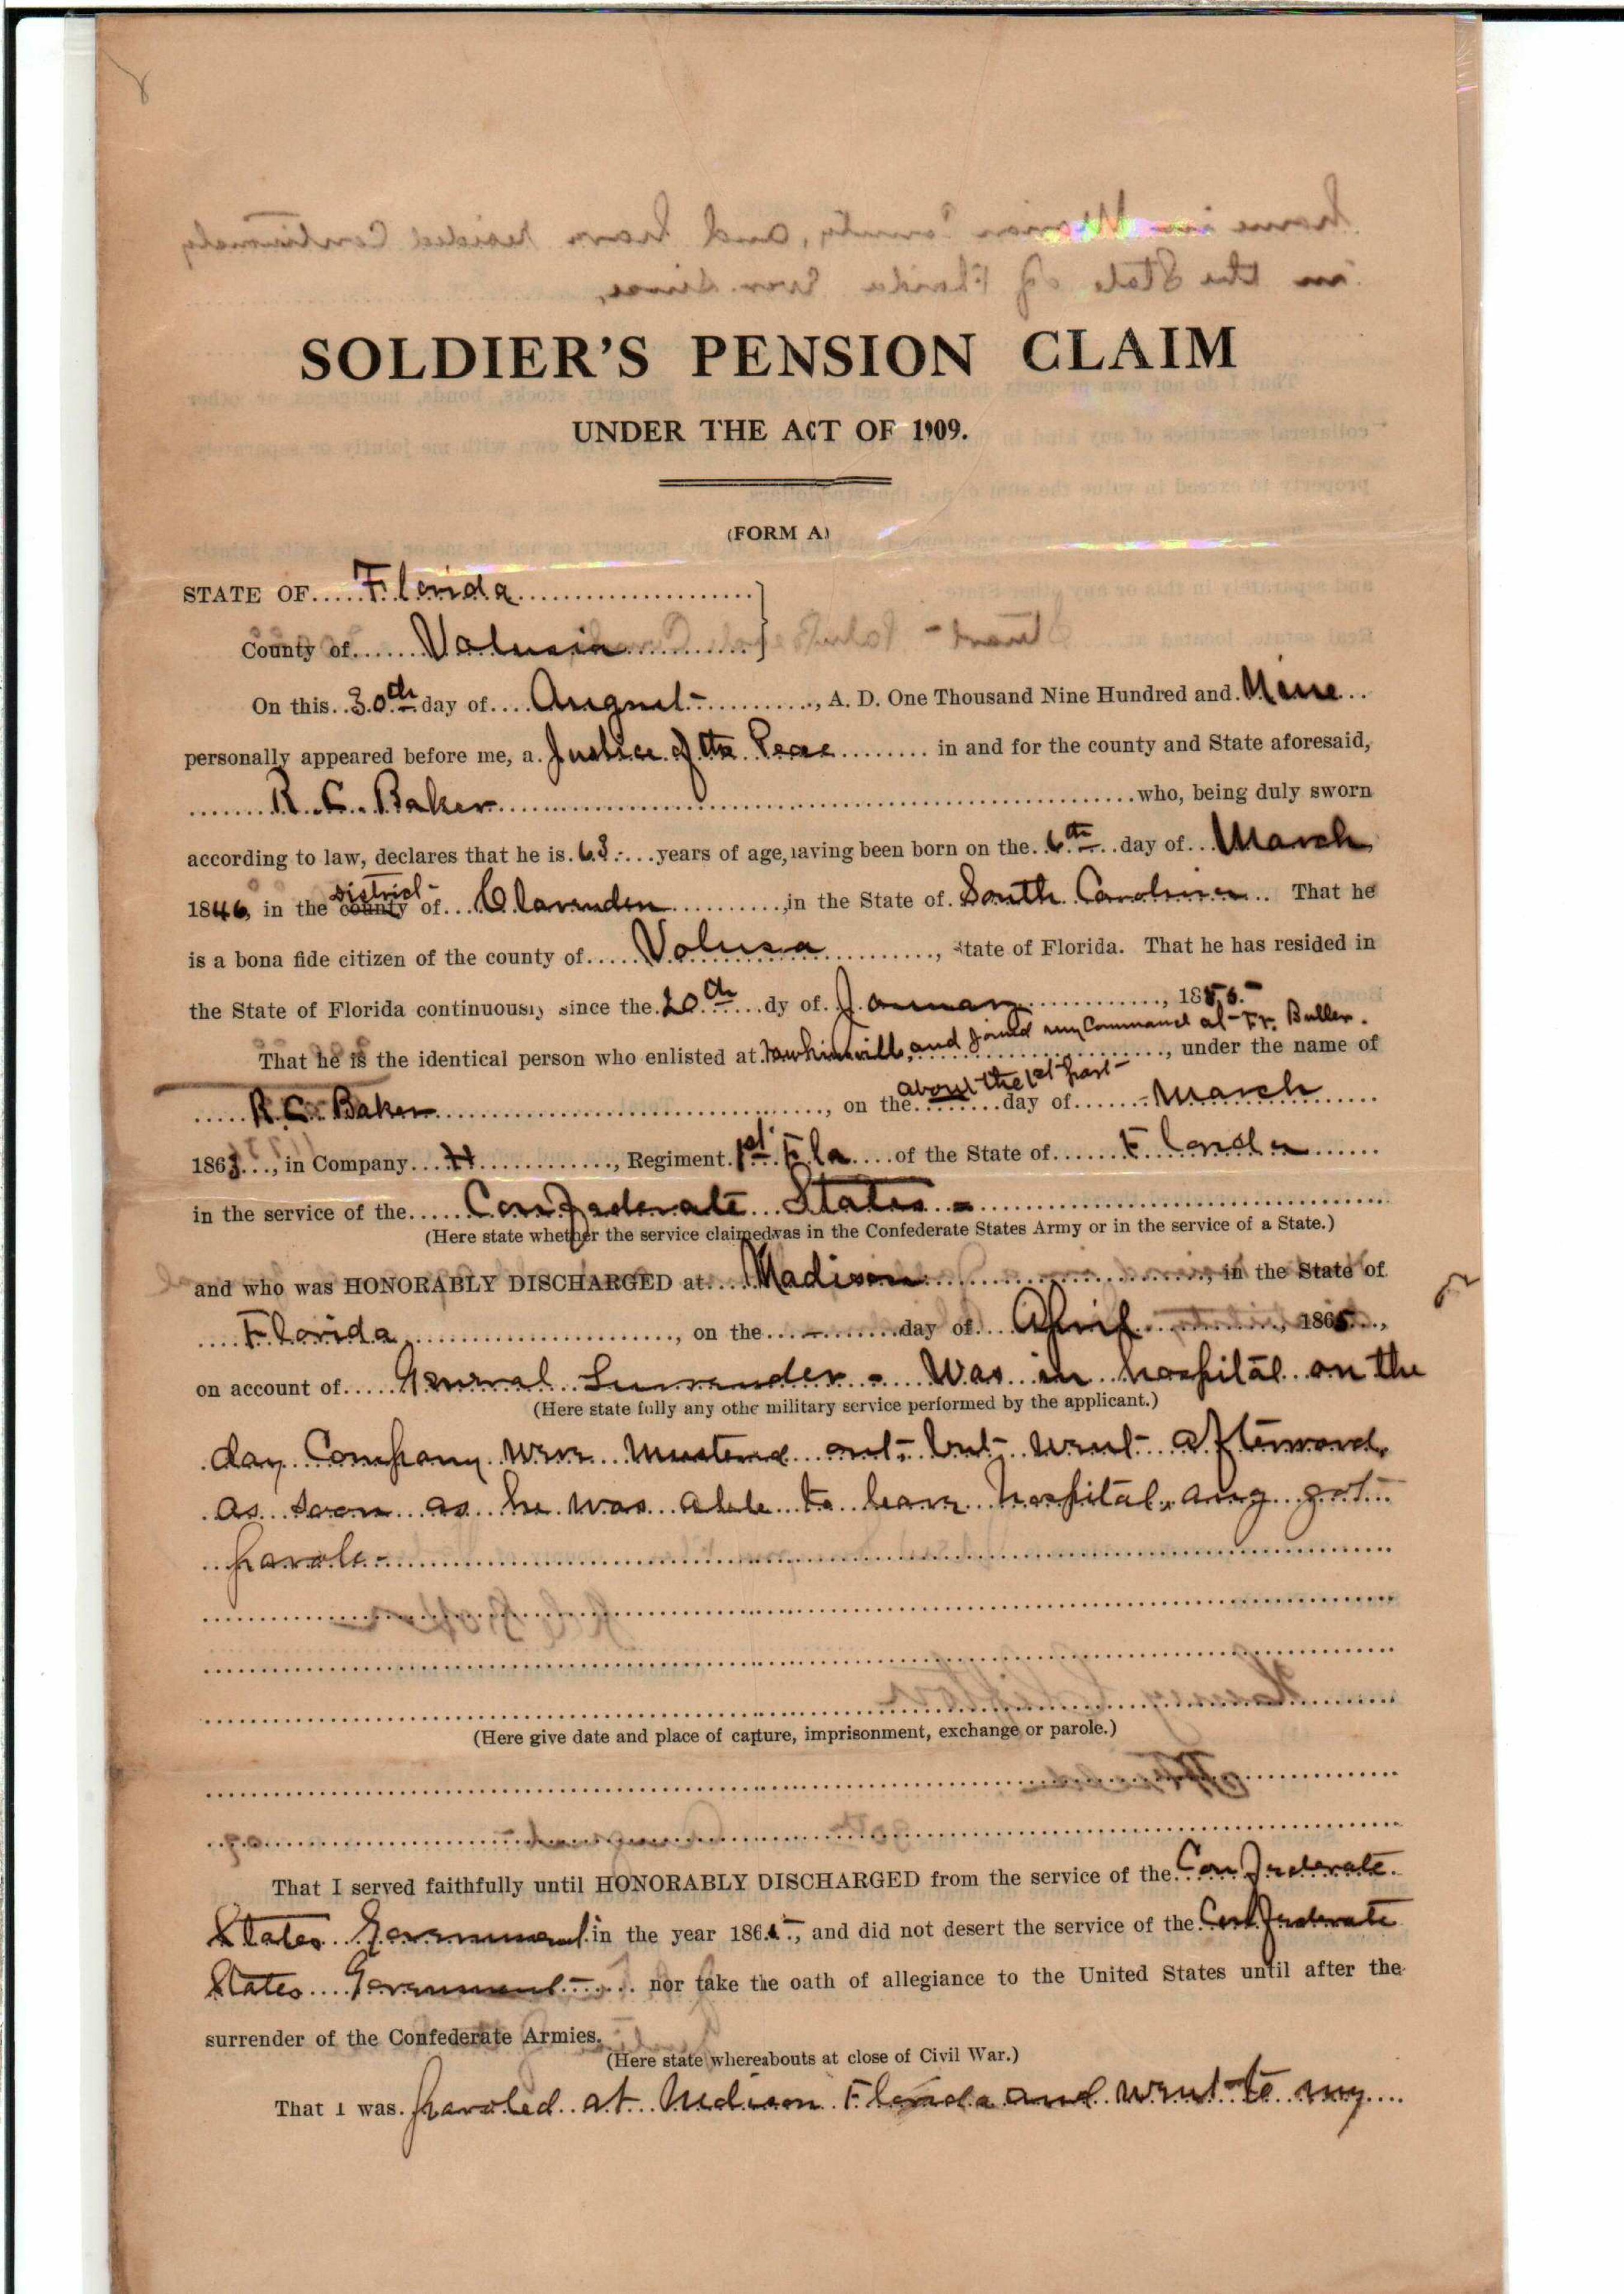 SOLDIER'S PENSION CLAIM
UNDER THE ACT OF 1909.
(FORM A)
STATE OF Florida
County of Volusia
On this 30th day of August, A. D. One Thousand Nine Hundred and Nine
personally appeared before me, a Justice of the Peace in and for the county and State aforesaid,
R. C. Baker who, being duly sworn
according to law, declares that he is 63 years of age, having been born on the 6th day of March
1846, in the county district of Clarenden, in the State of South Carolina. That he
is a bona fide citizen of the county of Volusa, State of Florida. That he has resided in
the State of Florida continuously since the 20th dy of January, 185
That he is the identical person who enlisted at and joined my Command at Ft. Butler, under the name of
R. C. Baker, on the about the 1st part day of March
1863, in Company H, Regiment 1st Fla of the State of Florida
in the service of the Confederate States -
(Here state whether the service claimed was in the Confederate States Army or in the service of a State.)
and who was HONORABLY DISCHARGED at Madison, in the State of
Florida, on the - day of April, 1865,
on account of General Surrender - Was in hospital on the
(Here state fully any other military service performed by the applicant.)
day Company were mustered out, but went afterward,
as soon as he was able to leave hospital, and got
parole -
(Here give date and place of capture, imprisonment, exchange or parole.)
That I served faithfully until HONORABLY DISCHARGED from the service of the Confederate
States Government in the year 1865, and did not desert the service of the Confederate
States Government nor take the oath of allegiance to the United States until after the
surrender of the Confederate Armies.
(Here state whereabouts at close of Civil War.)
That I was paroled at Madison Florida and went to my